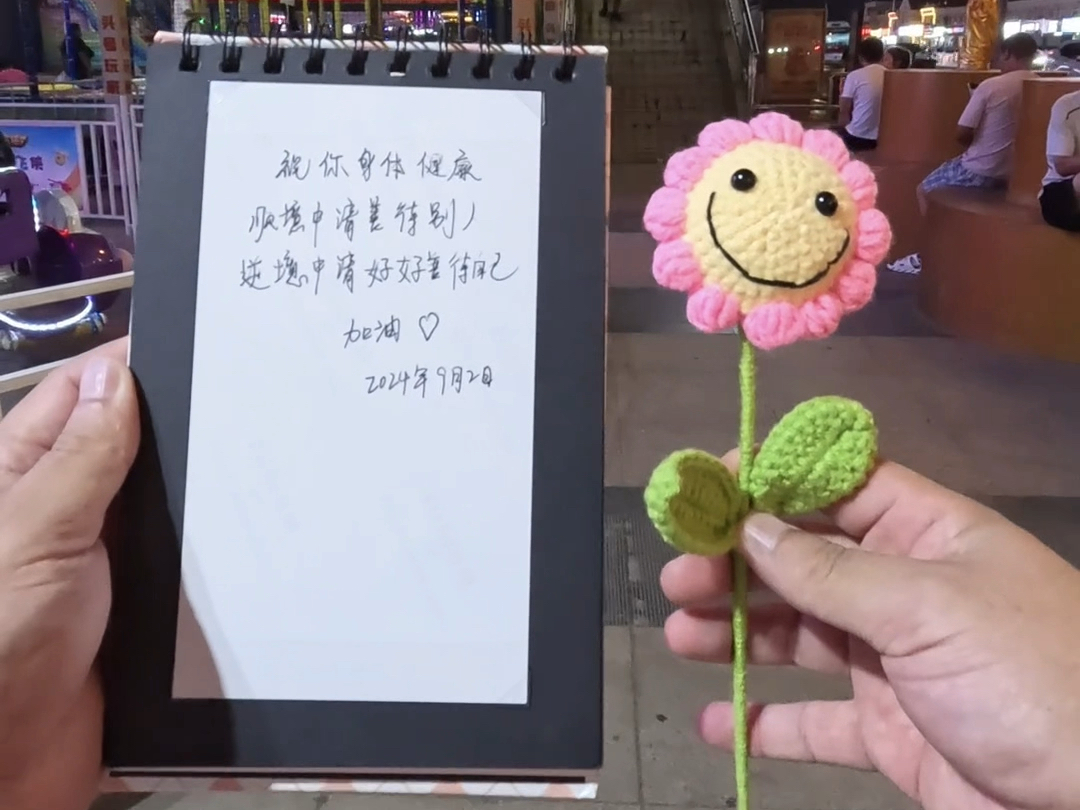 祝你身体健康
顺境中请善待别人
逆境中请好好善待自己
加油♡
2024年9月2日